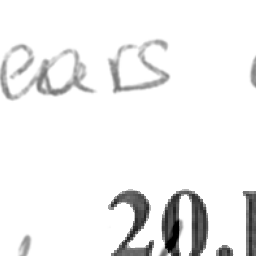 ears
20.